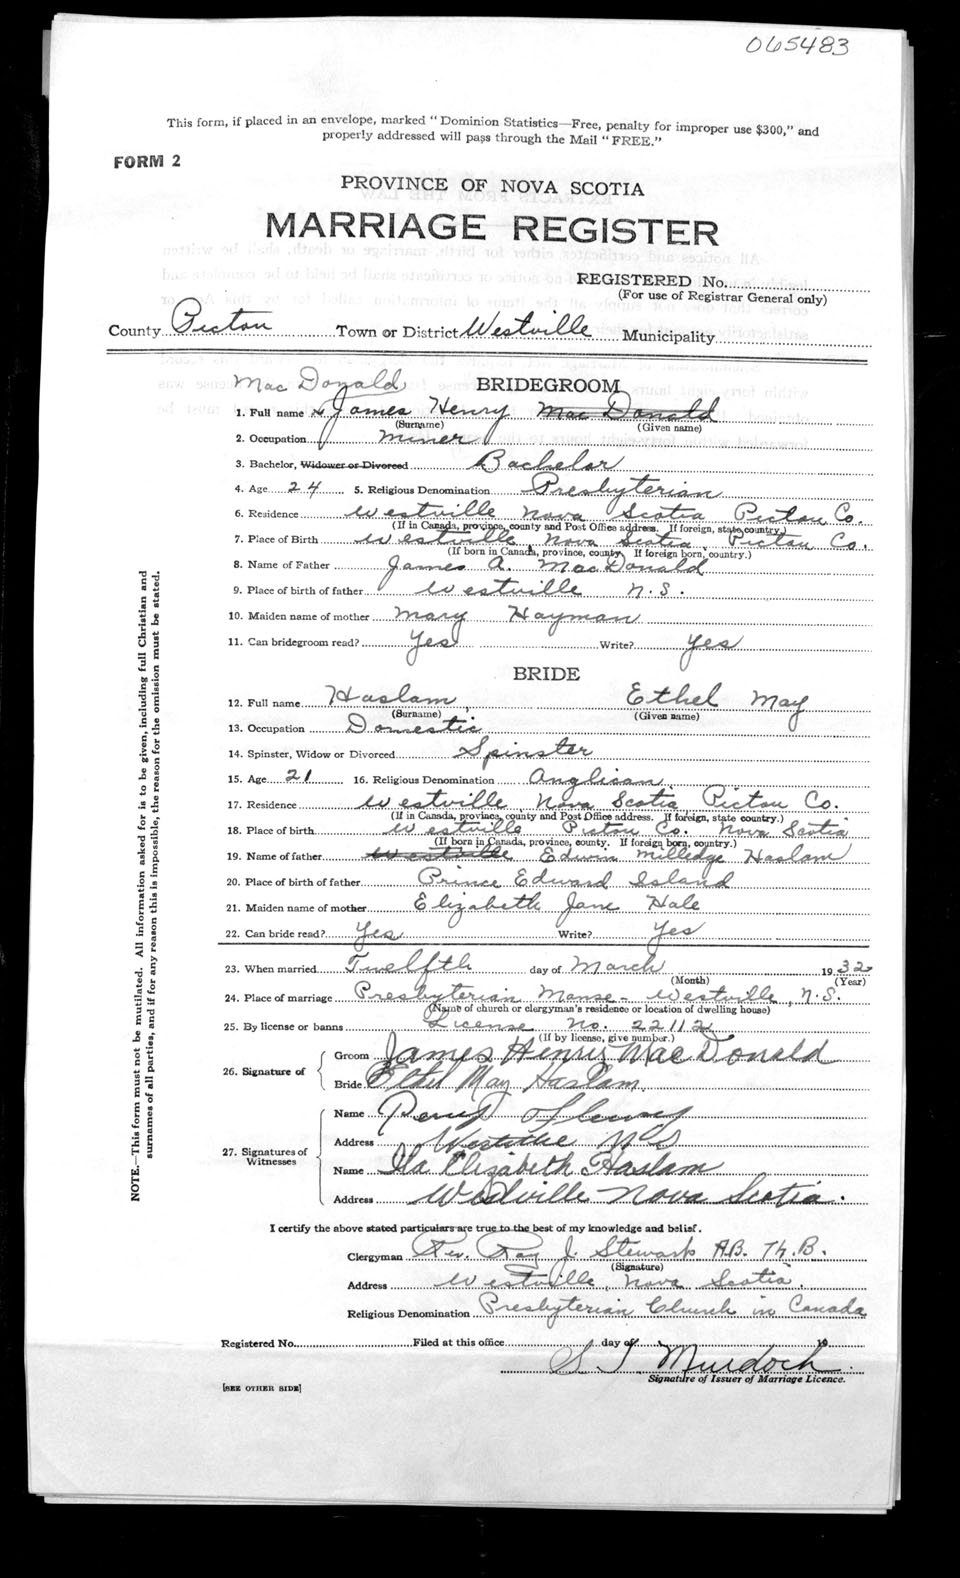 065483
This form, if placed in an envelope, marked "Dominion Statistics—Free, penalty for improper use $300," and
properly addressed will pass through the Mail "FREE."
FORM 2
PROVINCE OF NOVA SCOTIA
MARRIAGE REGISTER
REGISTERED No.
(For use of Registrar General only)
County Pictou Town or District Westville Municipality
Mac Donald BRIDEGROOM
1. Full name James Henry Mac Donald
(Surname) (Given name)
2. Occupation miner
3. Bachelor, Widower or Divorced Bachelor
4. Age 24 5. Religious Denomination Presbyterian
6. Residence Westville Nova Scotia Pictou Co.
(If in Canada, province, county and Post Office address. If foreign, state country.)
7. Place of Birth Westville Nova Scotia Pictou Co.
(If born in Canada, province, county. If foreign born, country.)
8. Name of Father James A. MacDonald
9. Place of birth of father Westville N.S.
10. Maiden name of mother Mary Hayman
11. Can bridegroom read? Yes Write? Yes
BRIDE
12. Full name Haslam, Ethel May
(Surname) (Given name)
13. Occupation Domestic
14. Spinster, Widow or Divorced Spinster
15. Age 21 16. Religious Denomination Anglican
17. Residence Westville, Nova Scotia, Pictou Co.
(If in Canada, province, county and Post Office address. If foreign, state country.)
18. Place of birth Westville Pictou Co. Nova Scotia
(If born in Canada, province, county. If foreign born, country.)
19. Name of father Westville Edwin Milledge Haslam
20. Place of birth of father Prince Edward Island
21. Maiden name of mother Elizabeth Jane Hale
22. Can bride read? Yes Write? Yes
23. When married Twelfth day of March 1932
(Month) (Year)
24. Place of marriage Presbyterian Manse - Westville, N.S.
(Name of church or clergyman's residence or location of dwelling house)
25. By license or banns License No. 22112
(If by license, give number.)
26. Signature of Groom James Henry MacDonald
Bride Ethel May Haslam
27. Signatures of Witnesses
Name Percy
Address Westville NS
Name Ila Elizabeth Haslam
Address Westville Nova Scotia.
I certify the above stated particulars are true to the best of my knowledge and belief.
Clergyman Rev. Ray J. Stewart A.B. Th.B.
(Signature)
Address Westville, Nova Scotia.
Religious Denomination Presbyterian Church in Canada
Registered No. Filed at this office day of 19
S J Murdoch
Signature of Issuer of Marriage Licence.
[SEE OTHER SIDE]
NOTE.—This form must not be mutilated. All information asked for is to be given, including full Christian and
surnames of all parties, and if for any reason this is impossible, the reason for the omission must be stated.